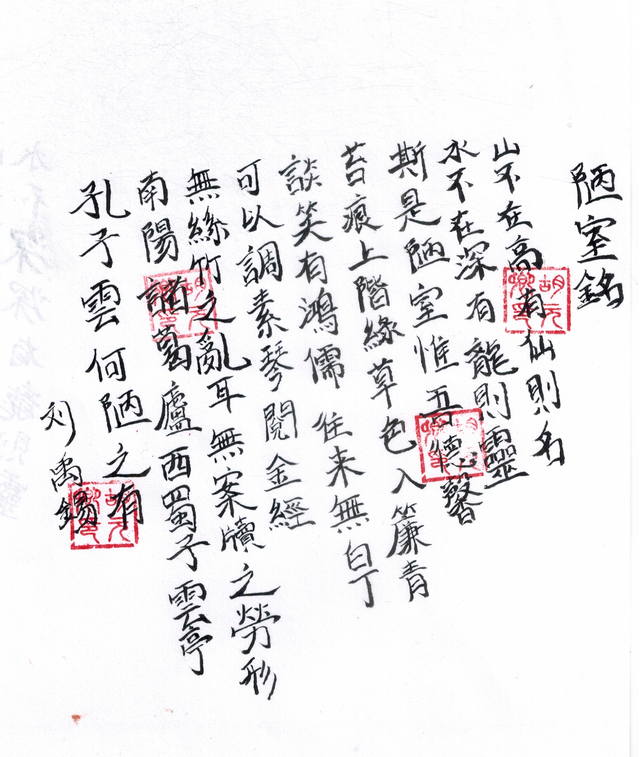 陋室銘
山不在高有仙則名
水不在深有龍則靈
斯是陋室惟吾德馨
苔痕上階緣草色入簾青
談笑有鴻儒 往来無白丁
可以調素琴閱金經
無絲竹之亂耳無案牘之勞形
南陽諸葛廬西蜀子雲亭
孔子雲何陋之有
刘禹錫